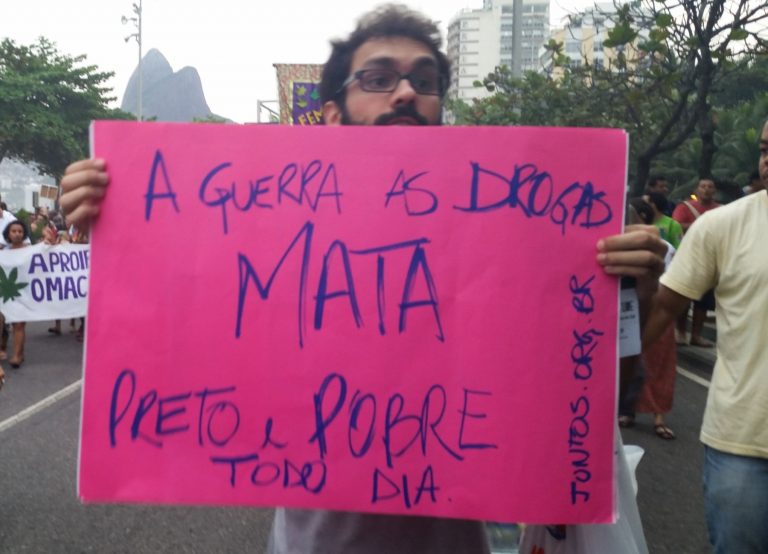 A GUERRA AS DROGAS
MATA
PRETO e POBRE
TODO DIA.
JUNTOS.ORG.BR